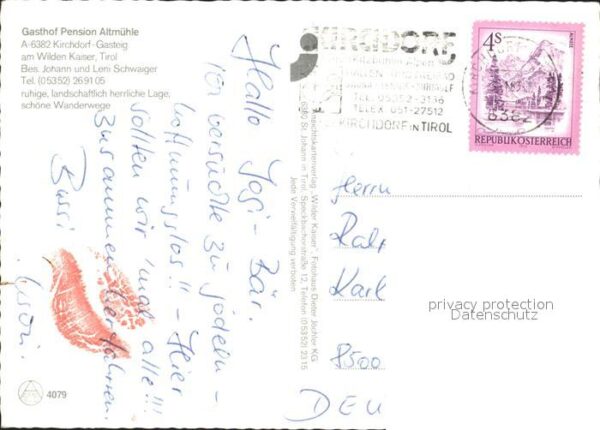 Gasthof Pension Altmühle
A-6382 Kirchdorf-Gasteig
am Wilden Kaiser, Tirol
Bes. Johann und Leni Schwaiger
Tel. (05352) 2691 05
ruhige, landschaftlich herrliche Lage,
schöne Wanderwege
Hallo Jogi-Bär.
Ich versuchte zu jodeln -
hoffnungslos!! - Hier
sollten wir 'mal alle!!!
zusammen hierfahren.
Bussi
4079
Ansichtskartenverlag "Wilder Kaiser", Fotohaus Dieter Jöchler KG
6380 St. Johann in Tirol, Speckbacherstraße 12, Telefon (05352) 2315
Jede Vervielfältigung verboten
KIRCHDORF
TEL 05352-3136
TELEX 051-27512
KIRCHDORF IN TIROL
6382
4S
REPUBLIK ÖSTERREICH
Herrn
Ralf
Karl
8500
DEU
privacy protection
Datenschutz